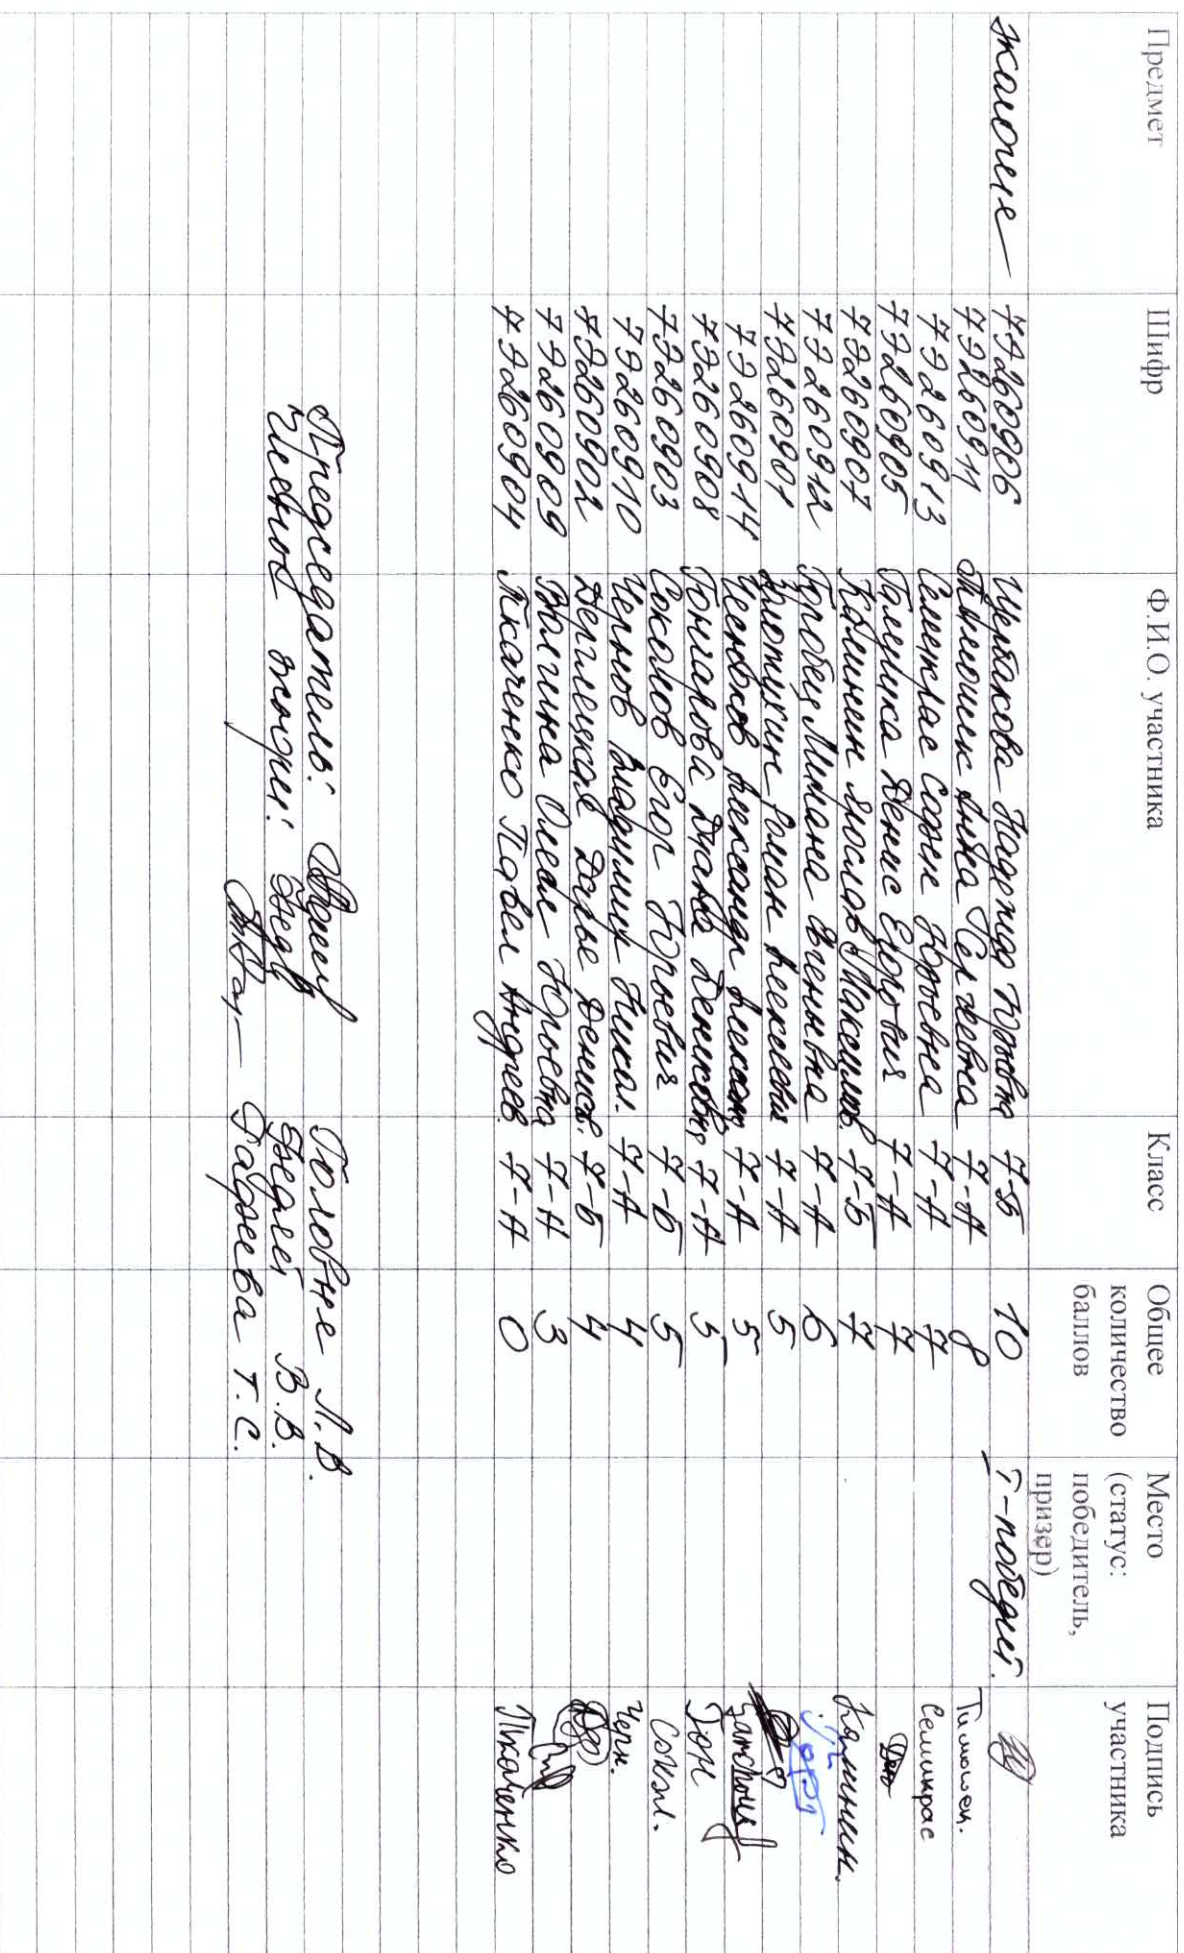 Предмет Шифр Ф.И.О. участника Класс Общее количество баллов Место (статус: победитель, призер) Подпись участника
экология 7Э260906 Щербакова Надежда Юрьевна 7-Б 10 1-победит.
7Э260911 Тимошик Анна Сергеевна 7-А 8 Тимошен.
7Э260913 Семикрас София Юрьевна 7-А 7 Семикрас
7Э260905 Галушка Денис Егорович 7-А 7
7Э260907 Калинин Ярослав Максимов. 7-Б 7 Калинин.
7Э260912 Горобец Милана Евгеньевна 7-А 6
7Э260901 Роман Алексеевич 7-А 5
7Э260914 Чесноков Александр Алексан. 7-А 5
7Э260908 Гончарова Диана Денисовна 7-А 5 Гон
7Э260903 Соколов Егор Юрьевич 7-Б 5 Сокол.
7Э260910 Чернов Владимир Никол. 7-А 4 Черн.
7Э260902 Дарья Денисов. 7-Б 4
7Э260909 Волгина Олеся Юрьевна 7-А 3
7Э260904 Ткаченко Павел Андреев. 7-А 0 Ткаченко
Председатель: Головня Л.В.
Члены жюри: В.В.
Т.С.